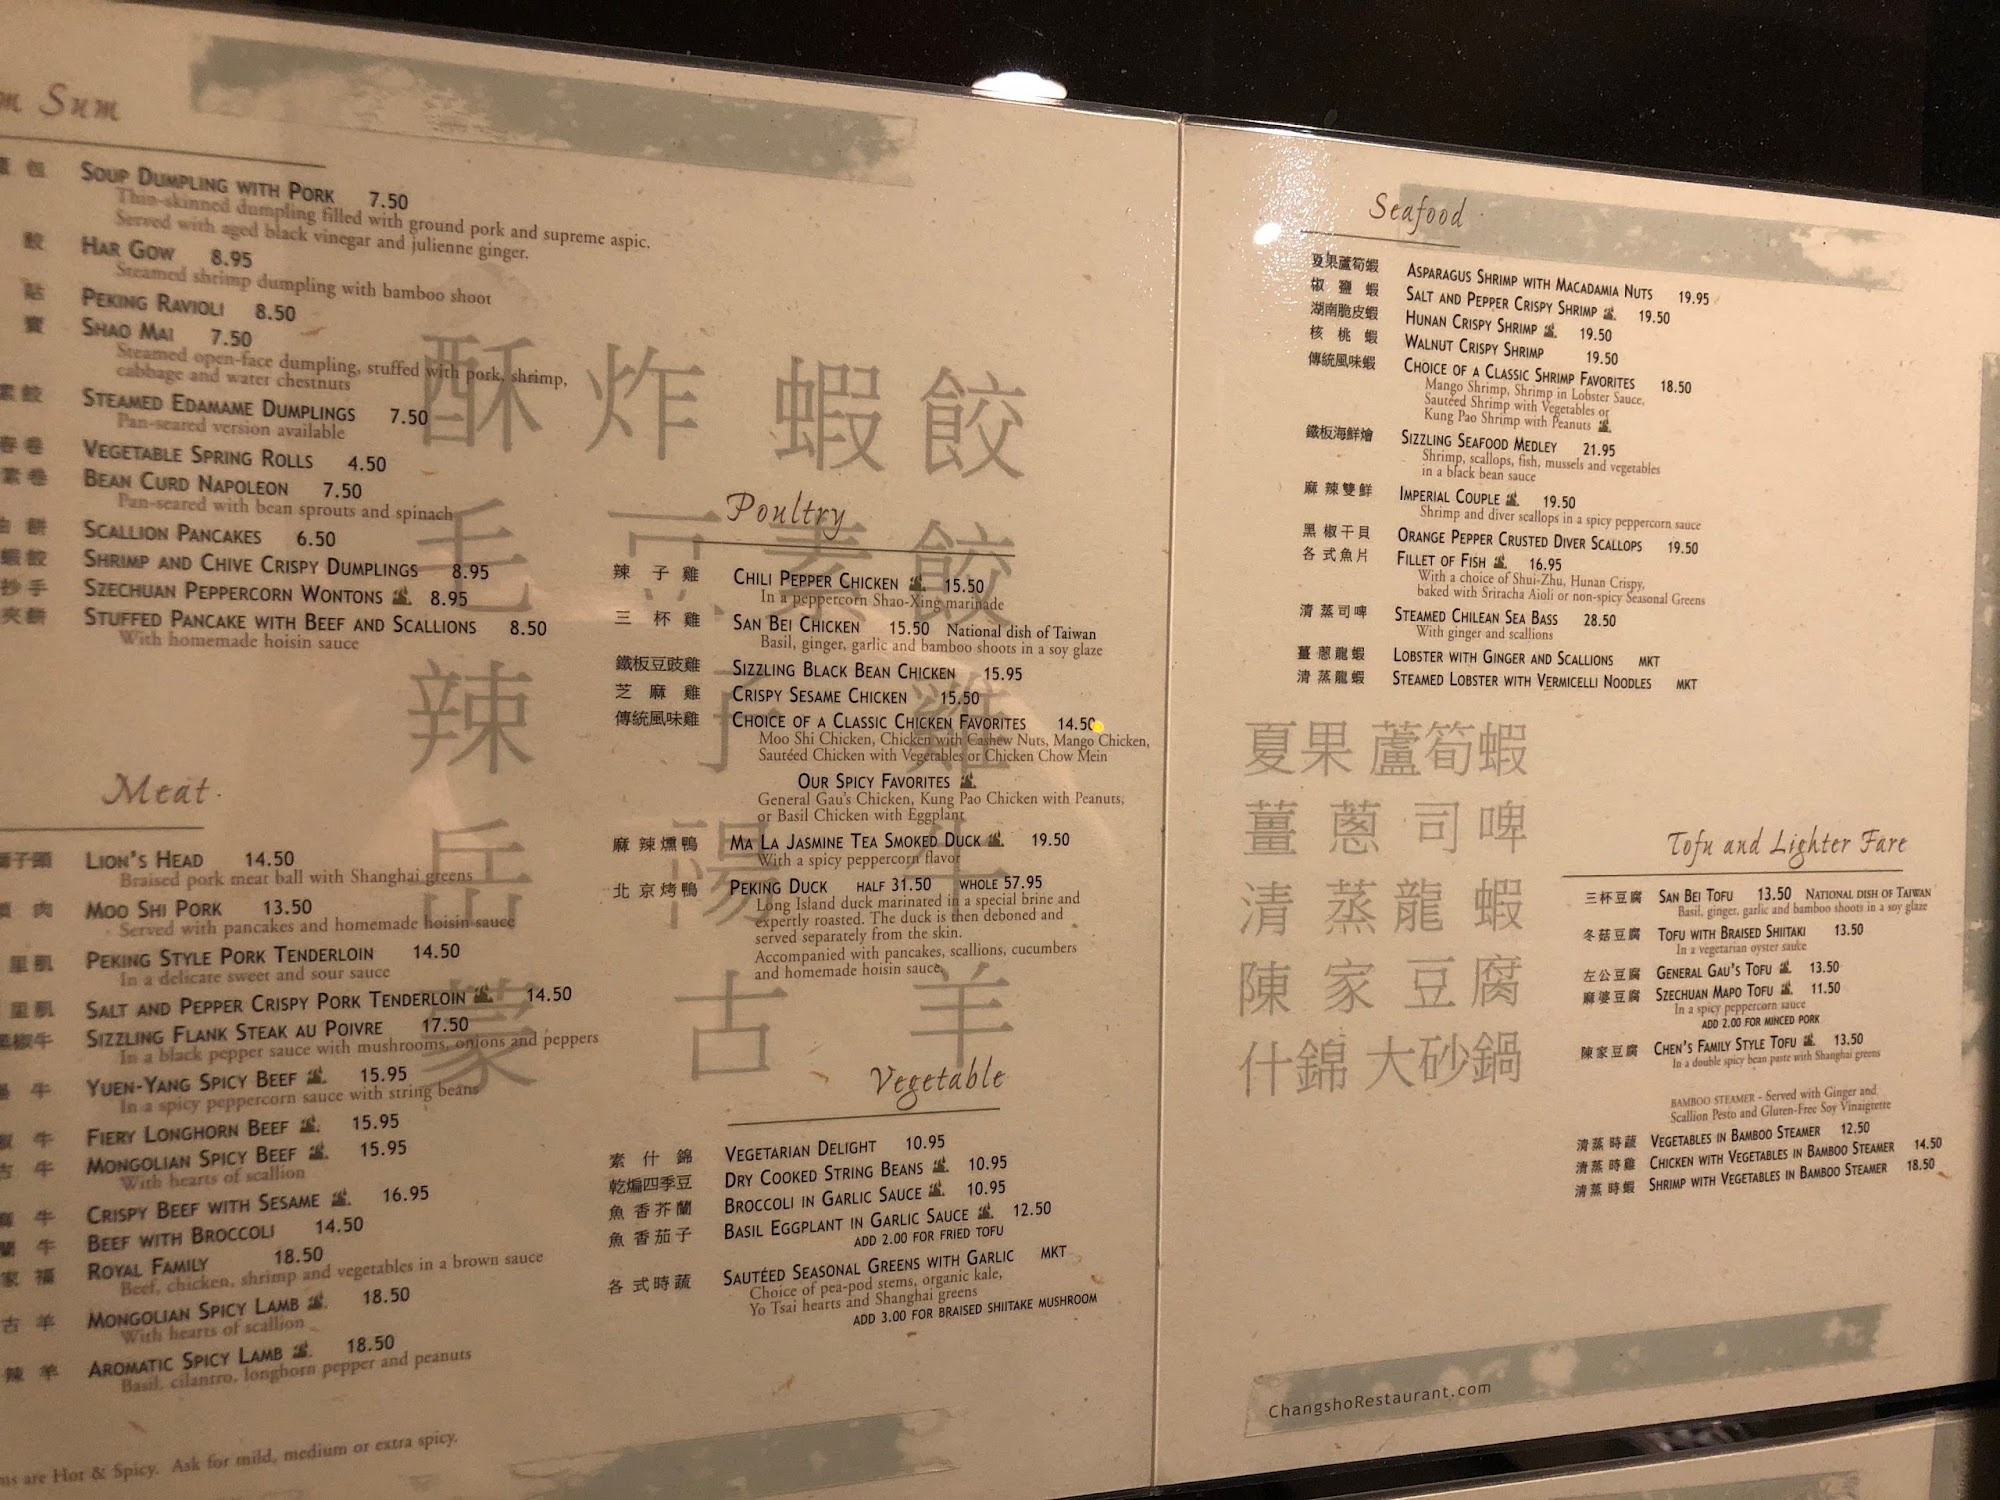 Sum
包 SOUP DUMPLING WITH PORK 7.50
Thin-skinned dumpling filled with ground pork and supreme aspic.
Served with aged black vinegar and julienne ginger.
餃 HAR GOW 8.95
Steamed shrimp dumpling with bamboo shoot
貼 PEKING RAVIOLI 8.50
賣 SHAO MAI 7.50
Steamed open-face dumpling, stuffed with pork, shrimp,
cabbage and water chestnuts
素餃 STEAMED EDAMAME DUMPLINGS 7.50
Pan-seared version available
春卷 VEGETABLE SPRING ROLLS 4.50
素卷 BEAN CURD NAPOLEON 7.50
Pan-seared with bean sprouts and spinach
油餅 SCALLION PANCAKES 6.50
蝦餃 SHRIMP AND CHIVE CRISPY DUMPLINGS 8.95
抄手 SZECHUAN PEPPERCORN WONTONS 8.95
夾餅 STUFFED PANCAKE WITH BEEF AND SCALLIONS 8.50
With homemade hoisin sauce
Meat
獅子頭 LION'S HEAD 14.50
Braised pork meat ball with Shanghai greens
肉 MOO SHI PORK 13.50
Served with pancakes and homemade hoisin sauce
里肌 PEKING STYLE PORK TENDERLOIN 14.50
In a delicate sweet and sour sauce
里肌 SALT AND PEPPER CRISPY PORK TENDERLOIN 14.50
黑椒牛 SIZZLING FLANK STEAK AU POIVRE 17.50
In a black pepper sauce with mushrooms, onions and peppers
牛 YUEN-YANG SPICY BEEF 15.95
In a spicy peppercorn sauce with string beans
椒牛 FIERY LONGHORN BEEF 15.95
古牛 MONGOLIAN SPICY BEEF 15.95
With hearts of scallion
麻牛 CRISPY BEEF WITH SESAME 16.95
蘭牛 BEEF WITH BROCCOLI 14.50
家福 ROYAL FAMILY 18.50
Beef, chicken, shrimp and vegetables in a brown sauce
古羊 MONGOLIAN SPICY LAMB 18.50
With hearts of scallion
辣羊 AROMATIC SPICY LAMB 18.50
Basil, cilantro, longhorn pepper and peanuts
ms are Hot & Spicy. Ask for mild, medium or extra spicy.
酥炸蝦餃
毛豆素餃
辣子雞
岳陽牛
蒙古羊
Poultry
辣子雞 CHILI PEPPER CHICKEN 15.50
In a peppercorn Shao-Xing marinade
三杯雞 SAN BEI CHICKEN 15.50 National dish of Taiwan
Basil, ginger, garlic and bamboo shoots in a soy glaze
鐵板豆豉雞 SIZZLING BLACK BEAN CHICKEN 15.95
芝麻雞 CRISPY SESAME CHICKEN 15.50
傳統風味雞 CHOICE OF A CLASSIC CHICKEN FAVORITES 14.50
Moo Shi Chicken, Chicken with Cashew Nuts, Mango Chicken,
Sautéed Chicken with Vegetables or Chicken Chow Mein
OUR SPICY FAVORITES
General Gau's Chicken, Kung Pao Chicken with Peanuts,
or Basil Chicken with Eggplant
麻辣燻鴨 MA LA JASMINE TEA SMOKED DUCK 19.50
With a spicy peppercorn flavor
北京烤鴨 PEKING DUCK HALF 31.50 WHOLE 57.95
Long Island duck marinated in a special brine and
expertly roasted. The duck is then deboned and
served separately from the skin.
Accompanied with pancakes, scallions, cucumbers
and homemade hoisin sauce.
Vegetable
素什錦 VEGETARIAN DELIGHT 10.95
乾煸四季豆 DRY COOKED STRING BEANS 10.95
魚香芥蘭 BROCCOLI IN GARLIC SAUCE 10.95
魚香茄子 BASIL EGGPLANT IN GARLIC SAUCE 12.50
ADD 2.00 FOR FRIED TOFU
各式時蔬 SAUTÉED SEASONAL GREENS WITH GARLIC MKT
Choice of pea-pod stems, organic kale,
Yo Tsai hearts and Shanghai greens
ADD 3.00 FOR BRAISED SHIITAKE MUSHROOM
Seafood
夏果蘆筍蝦 ASPARAGUS SHRIMP WITH MACADAMIA NUTS 19.95
椒鹽蝦 SALT AND PEPPER CRISPY SHRIMP 19.50
湖南脆皮蝦 HUNAN CRISPY SHRIMP 19.50
核桃蝦 WALNUT CRISPY SHRIMP 19.50
傳統風味蝦 CHOICE OF A CLASSIC SHRIMP FAVORITES 18.50
Mango Shrimp, Shrimp in Lobster Sauce,
Sautéed Shrimp with Vegetables or
Kung Pao Shrimp with Peanuts
鐵板海鮮燴 SIZZLING SEAFOOD MEDLEY 21.95
Shrimp, scallops, fish, mussels and vegetables
in a black bean sauce
麻辣雙鮮 IMPERIAL COUPLE 19.50
Shrimp and diver scallops in a spicy peppercorn sauce
黑椒干貝 ORANGE PEPPER CRUSTED DIVER SCALLOPS 19.50
各式魚片 FILLET OF FISH 16.95
With a choice of Shui-Zhu, Hunan Crispy,
baked with Sriracha Aioli or non-spicy Seasonal Greens
清蒸司啤 STEAMED CHILEAN SEA BASS 28.50
With ginger and scallions
薑蔥龍蝦 LOBSTER WITH GINGER AND SCALLIONS MKT
清蒸龍蝦 STEAMED LOBSTER WITH VERMICELLI NOODLES MKT
夏果蘆筍蝦
薑蔥司啤
清蒸龍蝦
陳家豆腐
什錦大砂鍋
Tofu and Lighter Fare
三杯豆腐 SAN BEI TOFU 13.50 NATIONAL DISH OF TAIWAN
Basil, ginger, garlic and bamboo shoots in a soy glaze
冬菇豆腐 TOFU WITH BRAISED SHIITAKI 13.50
In a vegetarian oyster sauce
左公豆腐 GENERAL GAU'S TOFU 13.50
麻婆豆腐 SZECHUAN MAPO TOFU 11.50
In a spicy peppercorn sauce
ADD 2.00 FOR MINCED PORK
陳家豆腐 CHEN'S FAMILY STYLE TOFU 13.50
In a double spicy bean paste with Shanghai greens
BAMBOO STEAMER - Served with Ginger and
Scallion Pesto and Gluten-Free Soy Vinaigrette
清蒸時蔬 VEGETABLES IN BAMBOO STEAMER 12.50
清蒸時雞 CHICKEN WITH VEGETABLES IN BAMBOO STEAMER 14.50
清蒸時蝦 SHRIMP WITH VEGETABLES IN BAMBOO STEAMER 18.50
ChangshoRestaurant.com